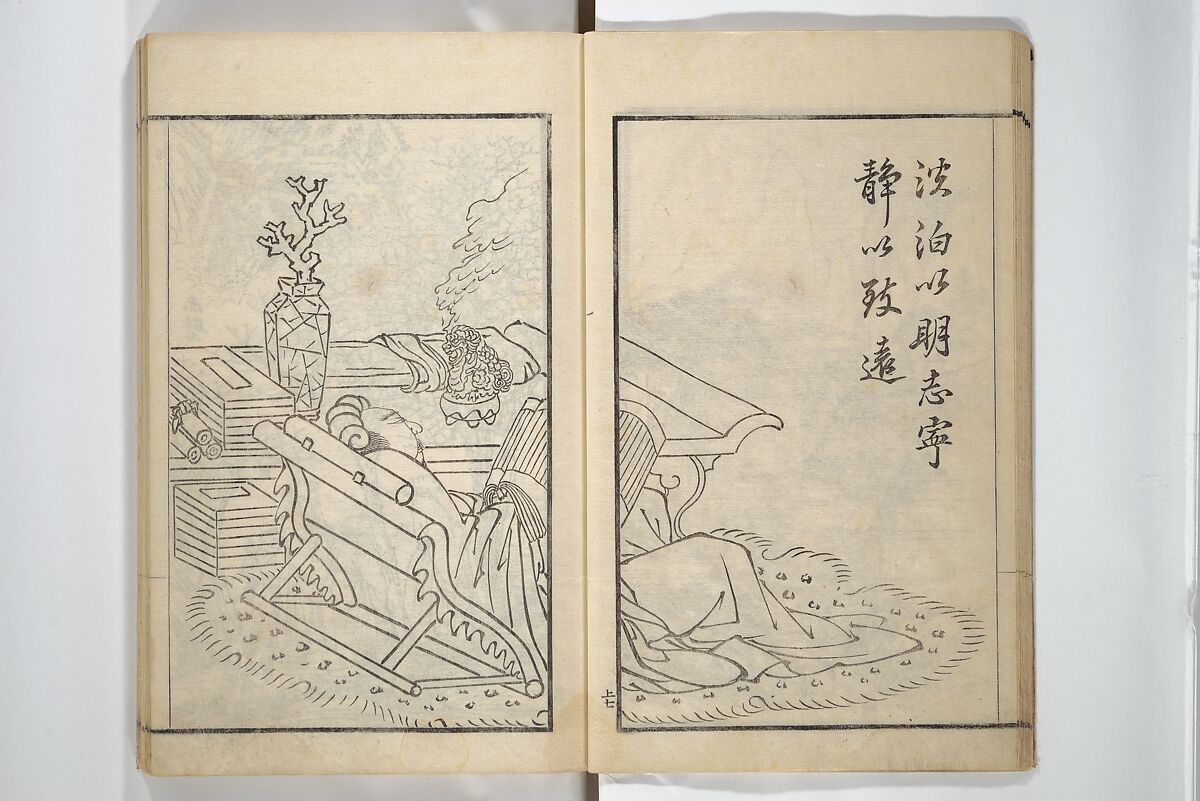 淡泊以明志寧
静以致遠
上七